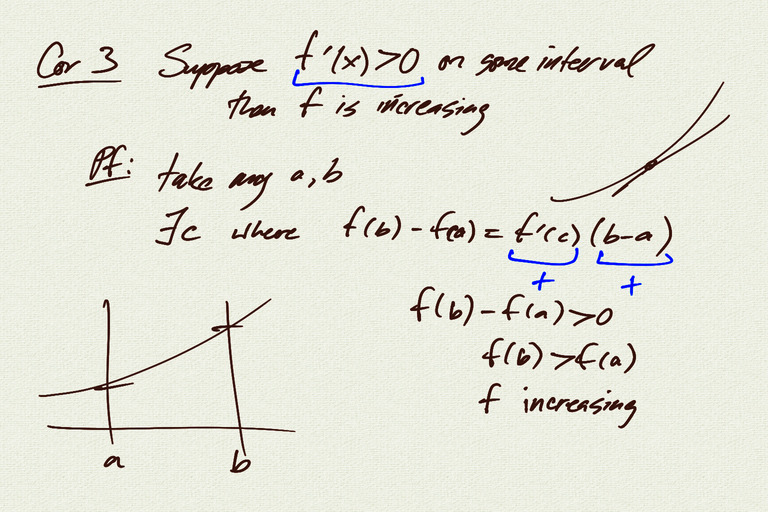 Cor 3 Suppose f'(x) > 0 on some interval
then f is increasing
Pf: take any a, b
∃c where f(b) - f(a) = f'(c) (b-a)
+ +
f(b) - f(a) > 0
f(b) > f(a)
f increasing
a b